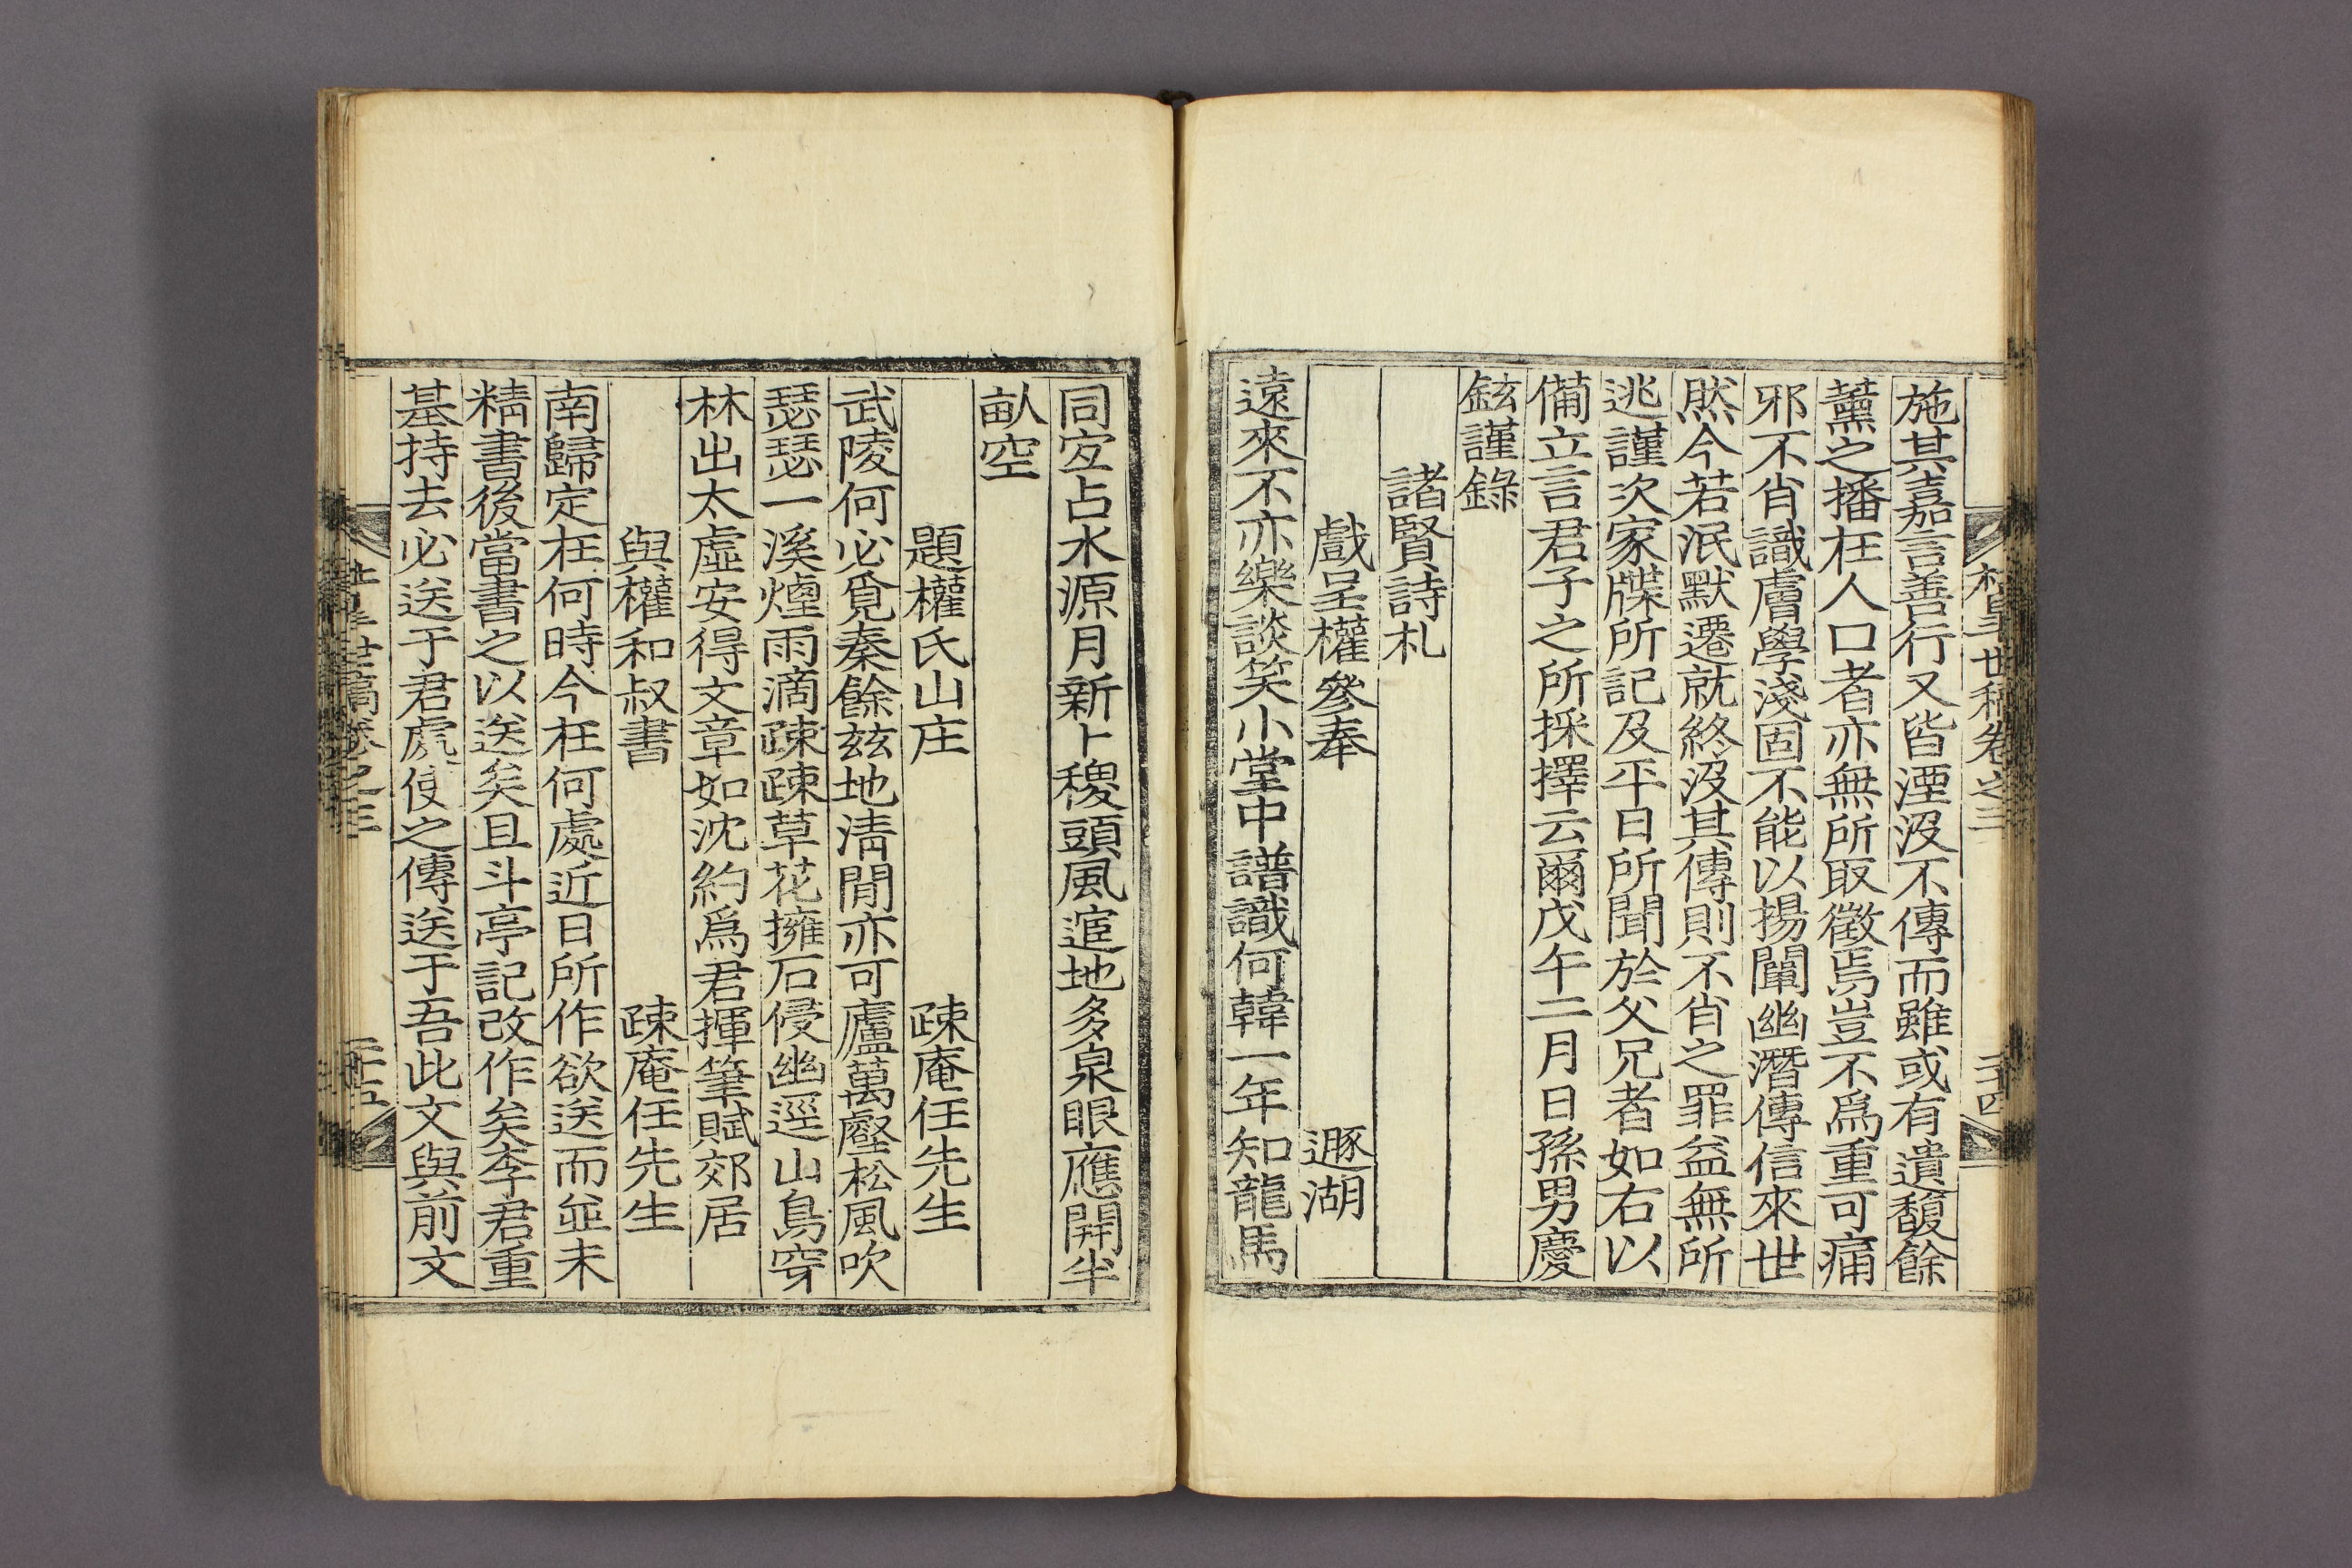 世稿卷之三
施其嘉言善行又皆湮沒不傳而雖或有遺馥餘
薰之播在人口者亦無所取徵焉豈不爲重可痛
邪不肖識膚學淺固不能以揚闡幽潛傳信來世
然今若泯默遷就終沒其傳則不肖之罪益無所
逃謹次家牒所記及平日所聞於父兄者如右以
備立言君子之所採擇云爾戊午二月日孫男慶
鉉謹錄
諸賢詩札
戲呈權參奉 遯湖
遠來不亦樂談笑小堂中譜識何韓一年知龍馬
同宜占水源月新卜稷頭風逭地多泉眼應開半
畝空
題權氏山庄 疎庵任先生
武陵何必覓秦餘玆地淸閒亦可廬萬壑松風吹
瑟瑟一溪煙雨滴疎疎草花擁石侵幽逕山鳥穿
林出太虛安得文章如沈約爲君揮筆賦郊居
與權和叔書 疎庵任先生
南歸定在何時今在何處近日所作欲送而並未
精書後當書之以送矣且斗亭記改作矣李君重
基持去必送于君處使之傳送于吾此文與前文
世稿卷之三 二十五